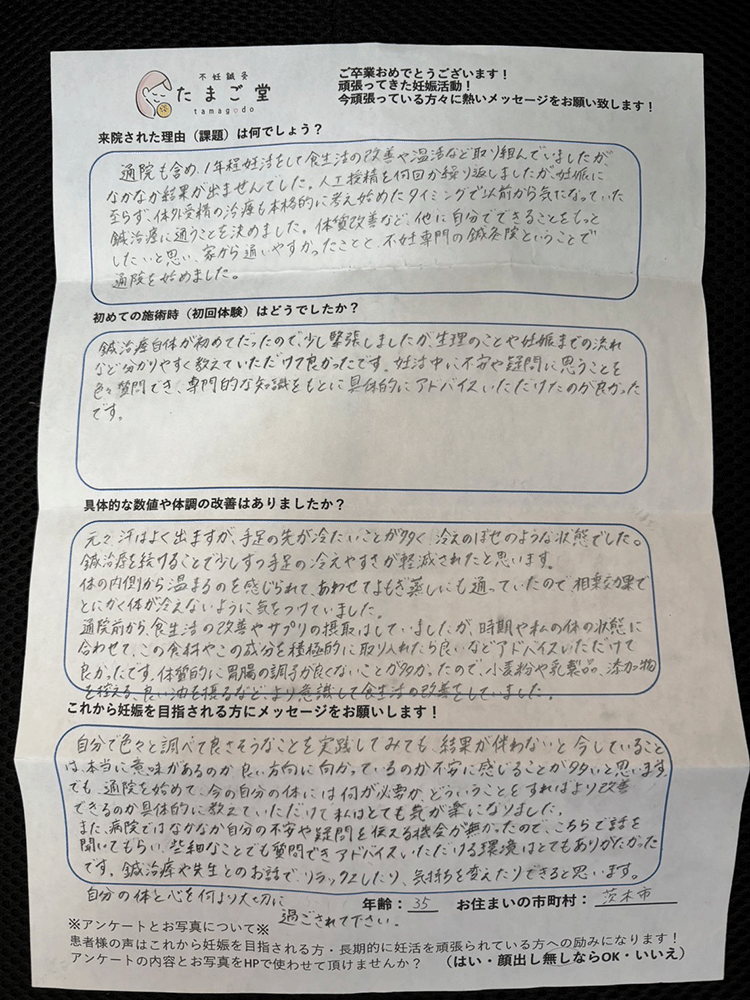 不妊鍼灸
たまご堂
tamagodo
ご卒業おめでとうございます！
頑張ってきた妊娠活動！
今頑張っている方々に熱いメッセージをお願い致します！
来院された理由（課題）は何でしょう？
通院も含め、1年程妊活をして食生活の改善や温活など取り組んでいましたが、
なかなか結果が出ませんでした。人工授精を何回か繰り返しましたが、妊娠に
至らず、体外受精の治療も本格的に考え始めたタイミングで以前から気になっていた
鍼治療に通うことを決めました。体質改善など、他に自分でできることをもっと
したいと思い、家から通いやすかったことと、不妊専門の鍼灸院ということで
通院を始めました。
初めての施術時（初回体験）はどうでしたか？
鍼治療自体が初めてだったので、少し緊張しましたが、生理のことや妊娠までの流れ
など分かりやすく教えていただけて良かったです。妊活中に不安や疑問に思うことを
色々質問でき、専門的な知識をもとに具体的にアドバイスいただけたのが良かった
です。
具体的な数値や体調の改善はありましたか？
元々汗はよく出ますが、手足の先が冷たいことが多く、冷えのぼせのような状態でした。
鍼治療を続けることで少しずつ手足の冷えやすさが軽減されたと思います。
体の内側から温まるのを感じられて、あわせてよもぎ蒸しにも通っていたので、相乗効果で
とにかく体が冷えないように気をつけていました。
通院前から、食生活の改善やサプリの摂取はしていましたが、時期や私の体の状態に
合わせて、この食材やこの成分を積極的に取り入れたら良いなどアドバイスいただけて
良かったです。体質的に胃腸の調子が良くないことが多かったので、小麦粉や乳製品、添加物
を控える、良い油を摂るなど、より意識して食生活の改善をしていました。
これから妊娠を目指される方にメッセージをお願いします！
自分で色々と調べて良さそうなことを実践してみても、結果が伴わないと今していること
は、本当に意味があるのか、良い方向に向かっているのか不安に感じることが多いと思います。
でも、通院を始めて、今の自分の体には何が必要か、どういうことをすればより改善
できるのか具体的に教えていただけて私はとても気が楽になりました。
また、病院ではなかなか自分の不安や疑問を伝える機会が無かったので、こちらで話を
聞いてもらい、些細なことでも質問できアドバイスいただける環境はとてもありがたかった
です。鍼治療や先生とのお話で、リラックスしたり、気持ちを変えたりできると思います。
自分の体と心を何より大切に
過ごされて下さい。
年齢： 35 お住まいの市町村： 茨木市
※アンケートとお写真について※
患者様の声はこれから妊娠を目指される方・長期的に妊活を頑張られている方への励みになります！
アンケートの内容とお写真をHPで使わせて頂けませんか？ （はい・顔出し無しならOK・いいえ）